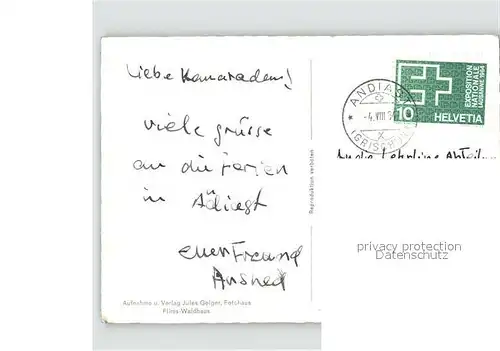 Liebe Kamaraden!
viele grüsse
an die ferien
in
euer Freund
Aufnahme u. Verlag Jules Geiger, Fotohaus
Flims-Waldhaus
Reproduktion verboten
ANDIAST
-4.VIII
(GRISCHUN)
EXPOSITION
NATIONALE
LAUSANNE 1964
10 HELVETIA
An die Lehrlings Abteilung
privacy protection
Datenschutz